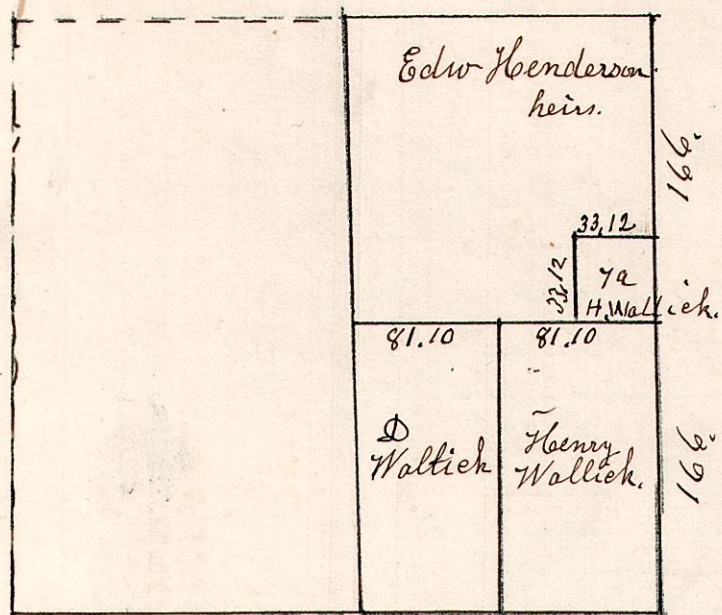 Edw Henderson
heirs.
33,12
33,12
7a
H. Wallick.
81.10
81.10
D
Waltick
Henry
Wallick.